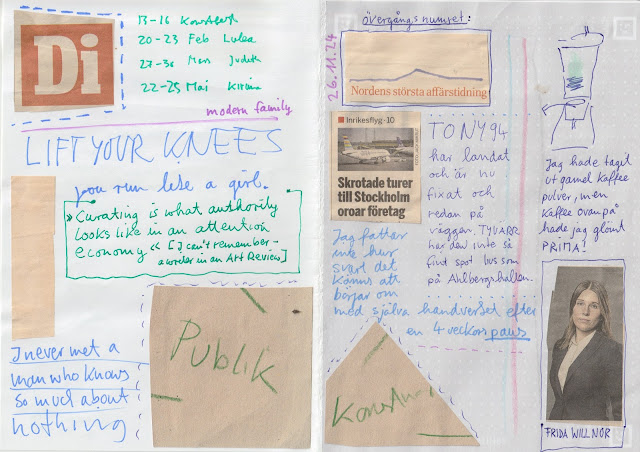 Di
13-16 Konsthall
20-23 Feb Lulea
27-30 Mars Judith
22-25 Mai Kiruna
modern family
LIFT YOUR KNEES
you run like a girl.
» Curating is what authority
looks like in an attention
economy « [I can't remember -
a worder in an Art Review]
Publik
I never met a
man who knows
so much about
nothing
26.11.24
övergångsnumret:
Nordens största affärstidning
Inrikesflyg-10
Skrotade turer
till Stockholm
oroar företag
TONY94
har landat
och är nu
fixat och
redan på
väggen. TYVÄRR
har den inte så
find spot hos som
på Ahlbergshallen.
Jag fattar
inte hur
svårt det
känns att
börjar om
med själva handverket efter
en 4 veckors paus
Konstnär
Jag hade tagit
ut gamel Kaffee
pulver, men
Kaffee ovan på
hade jag glömt
PRIMA!
FRIDA WILLNOR